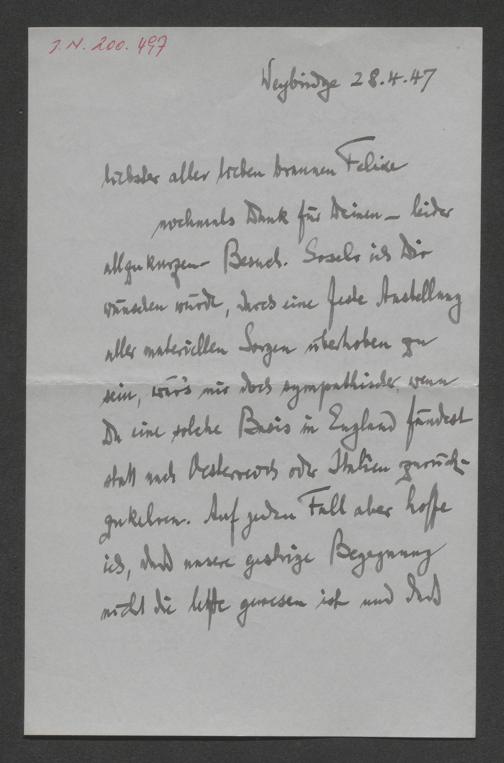 J.N. 200.497
Weybridge 28.4.47
liebster aller lieben braunen Felixe
nochmals Dank für Deinen – leider
allzukurzen – Besuch. Sosehr ich Dir
wünschen würde, durch eine feste Anstellung
aller materiellen Sorgen überhoben zu
sein, wär's mir doch sympathischer, wenn
Du eine solche Basis in England fändest
statt nach Oesterreich oder Italien zurück-
zukehren. Auf jeden Fall aber hoffe
ich, dass unsere gestrige Begegnung
nicht die letzte gewesen ist und dass